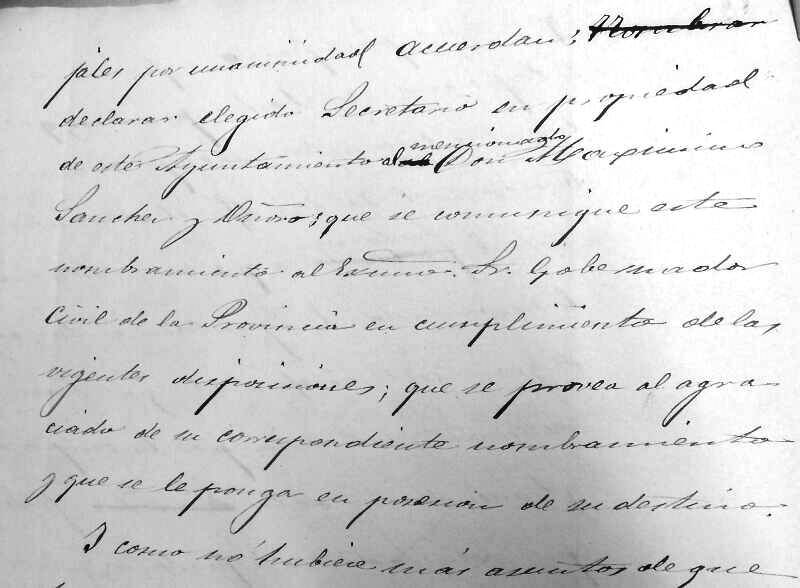 jales por unanimidad acuerdan; Nombrar
declarar elegido Secretario en propiedad
de este Ayuntamiento al mencionado Don Maximino
Sanchez y Oñoro; que se comunique este
nombramiento al Excmo. Sr. Gobernador
Civil de la Provincia en cumplimiento de las
vigentes disposiciones; que se provea al agra-
ciado de su correspondiente nombramiento
y que se le ponga en posesion de su destino.
Y como no hubiere más asuntos de que